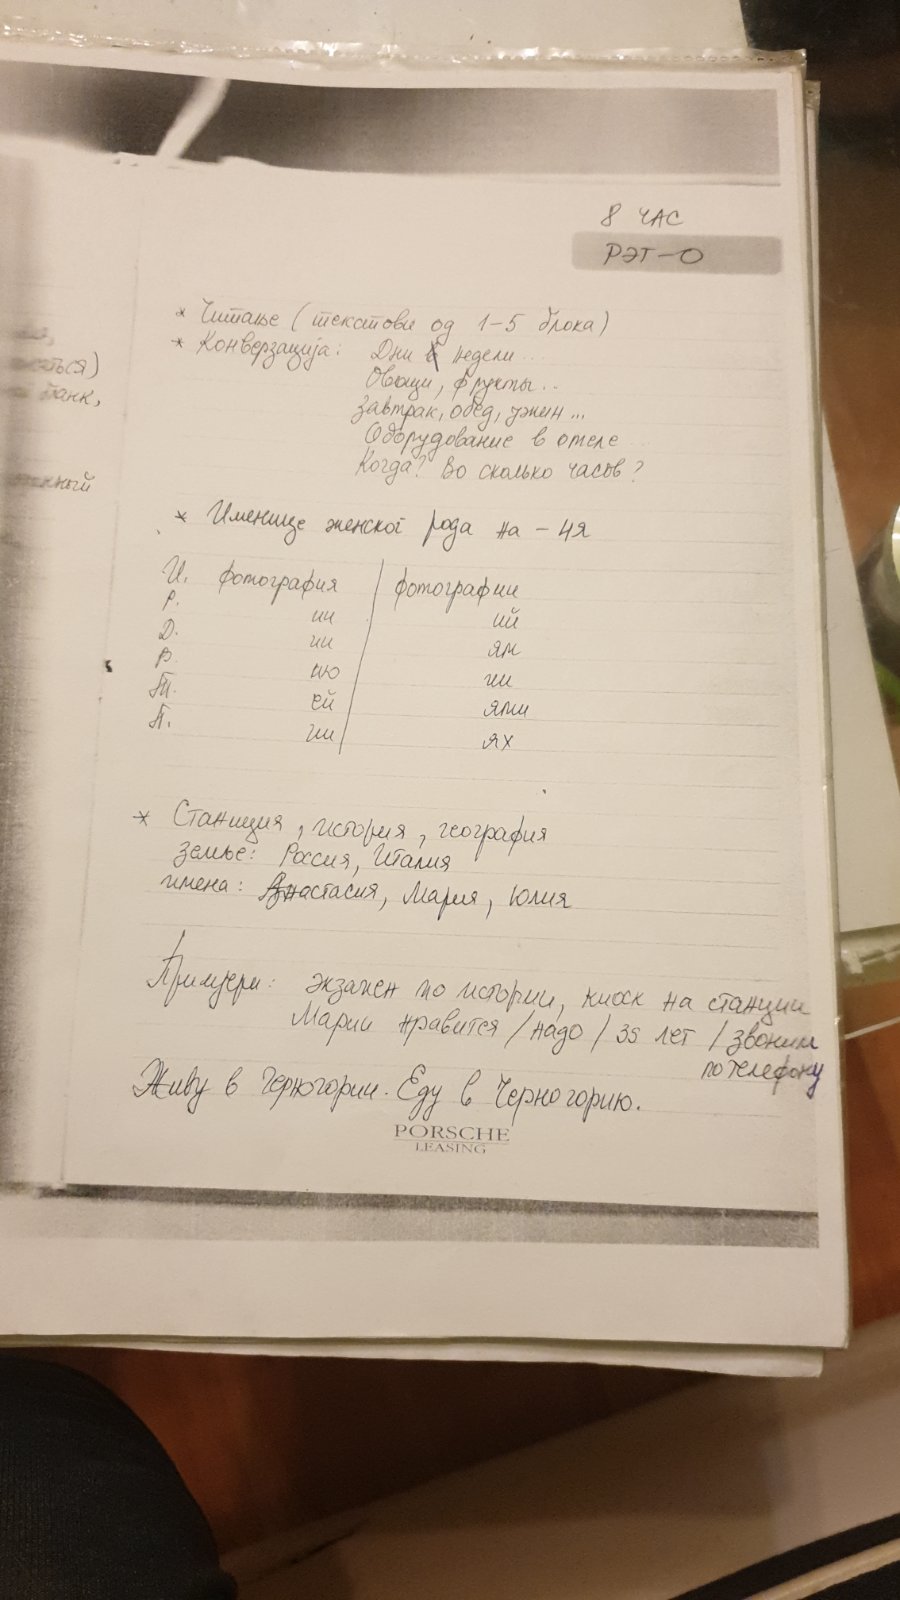 8 ЧАС
РЭТ-О
* Читање (текстови од 1-5 блока)
* Конверзација: Дни недели...
Овощи, фрукты...
Завтрак, обед, ужин...
Оборудование в отеле...
Когда? Во сколько часов?
* Именице женског рода на -ия
И. фотография фотографии
Р. ии ий
Д. ии ям
В. ию ии
Т. ей ями
П. ии ях
* Станция, история, география
земље: Россия, Италия
имена: Анастасия, Мария, Юлия
Примјери: экзамен по истории, киоск на станции
Марии нравится / надо / 35 лет / звоним
по телефону
Живу в Черногории. Еду в Черногорию.
PORSCHE
LEASING
ться)
банк,